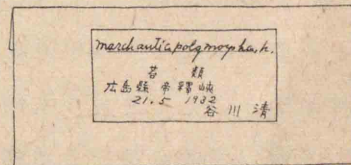 marchantia polymorpha, L.
苔 類
広島縣 帝釋峡
21.5 1932
谷川清